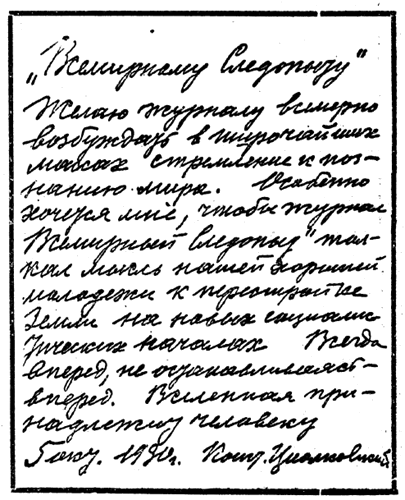 „Всемирному Следопыту"
Желаю журналу всемерно
возбуждать в широчайших
массах стремление к поз-
нанию мира. Особенно
хочется мне, чтобы журнал
Всемирный Следопыт" тол-
кал мысль нашей хорошей
молодежи к перестройке
Земли на новых социали
стических началах Всегда
вперед, не останавливаясь—
вперед. Вселенная при-
надлежит человеку
5 окт. 1930 г. Конст. Циолковский